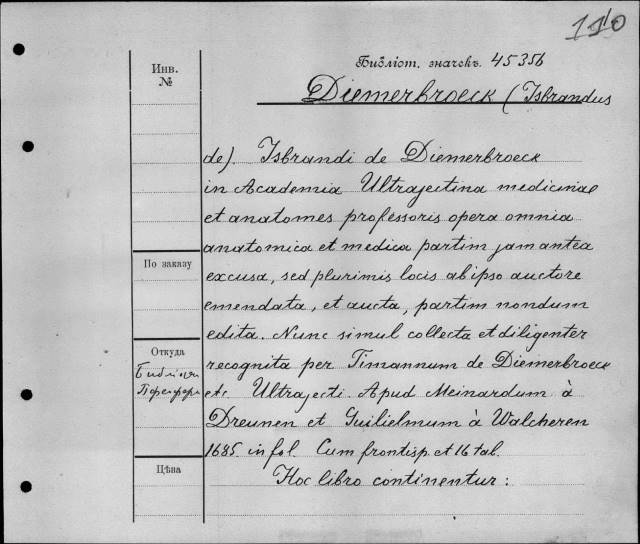 110
Библіот. значекъ. 45356
Инв.
№
Diemerbroeck (Isbrandus
de). Isbrandi de Diemerbroeck
in Academia Ultrajectina medicinae
et anatomes professoris opera omnia
anatomica et medica partim jam antea
excusa, sed plurimis locis ab ipso auctore
emendata, et aucta, partim nondum
edita. Nunc simul collecta et diligenter
recognita per Timannum de Diemerbroeck
etc. Ultrajecti. Apud Meinardum à
Dreunen et Guilielmum à Walcheren
1685. in fol. Cum frontisp. et 16 tab.
Hoc libro continentur:
По заказу
Откуда
Цѣна